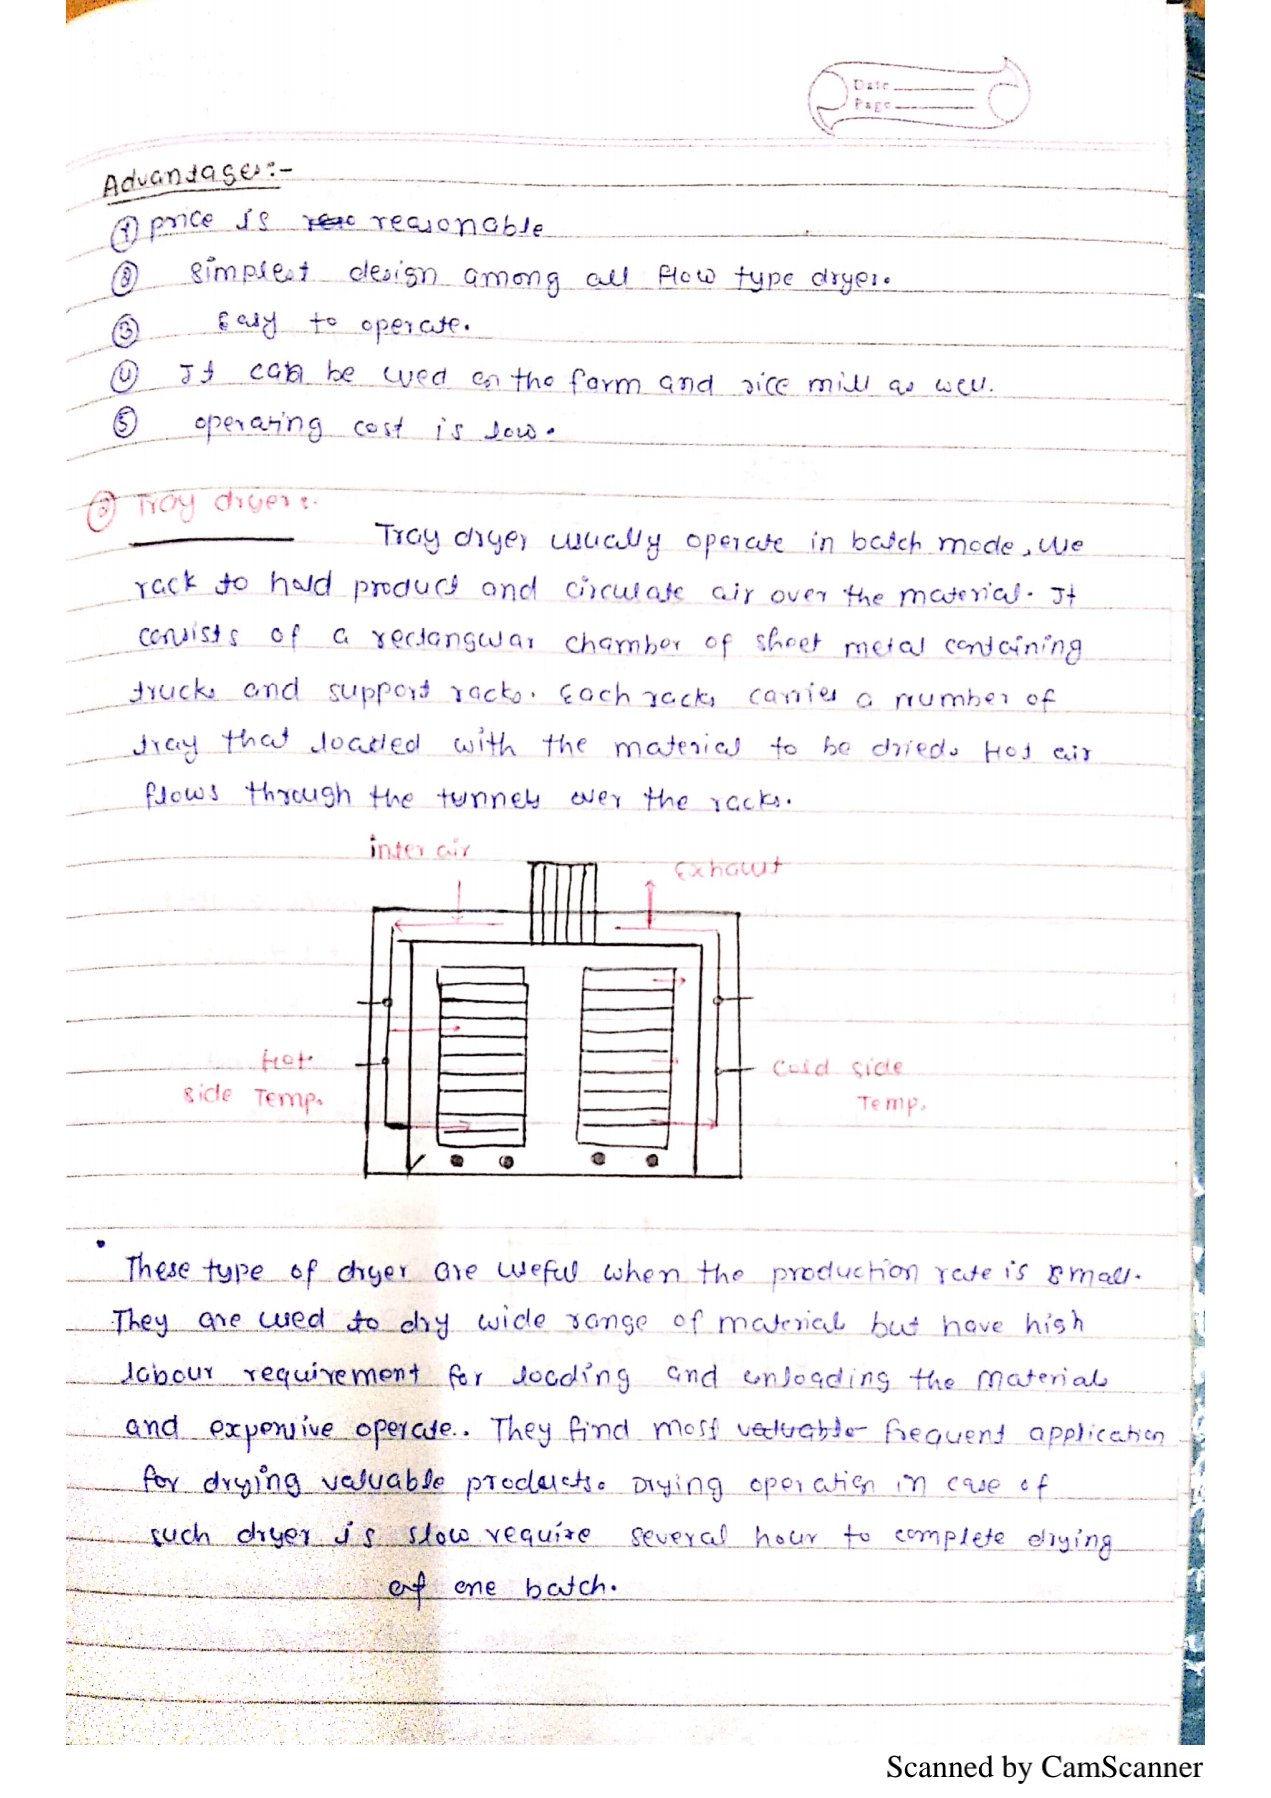 Date
Page
Advantages:-
① price is reasonable
② Simplest design among all flow type dryer.
③ Easy to operate.
④ It can be used on the farm and rice mill as well.
⑤ operating cost is low.
③ Tray dryers.
Tray dryer usually operate in batch mode, use
rack to hold product and circulate air over the material. It
consists of a rectangular chamber of sheet metal containing
trucks and support racks. Each racks carries a number of
tray that loaded with the material to be dried. Hot air
flows through the tunnels over the racks.
inter air
Exhaust
Hot
side Temp.
Cold side
Temp.
• These type of dryer are useful when the production rate is small.
They are used to dry wide range of materials but have high
labour requirement for loading and unloading the materials
and expensive operate.. They find most frequent application
for drying valuable products. Drying operation in case of
such dryer is slow require several hour to complete drying
of one batch.
Scanned by CamScanner